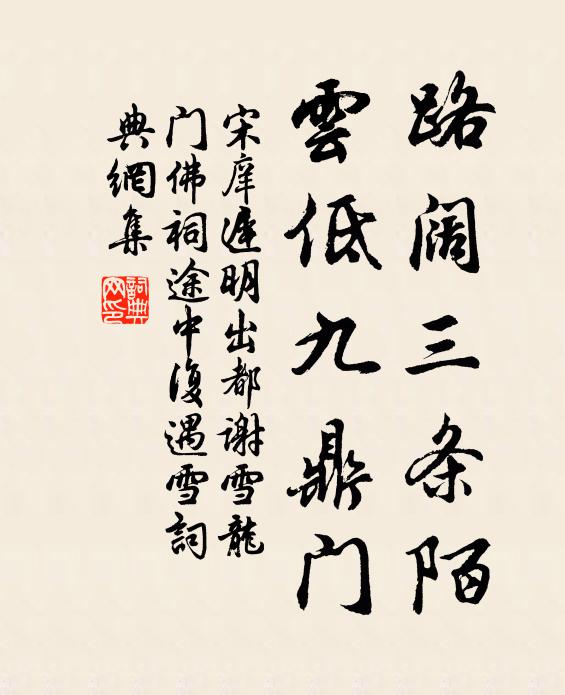 路阔三条陌
雲低九鼎门
宋庠遲明出都谢雪龍
门佛祠途中復遇雪詞
典網集
詞典网印